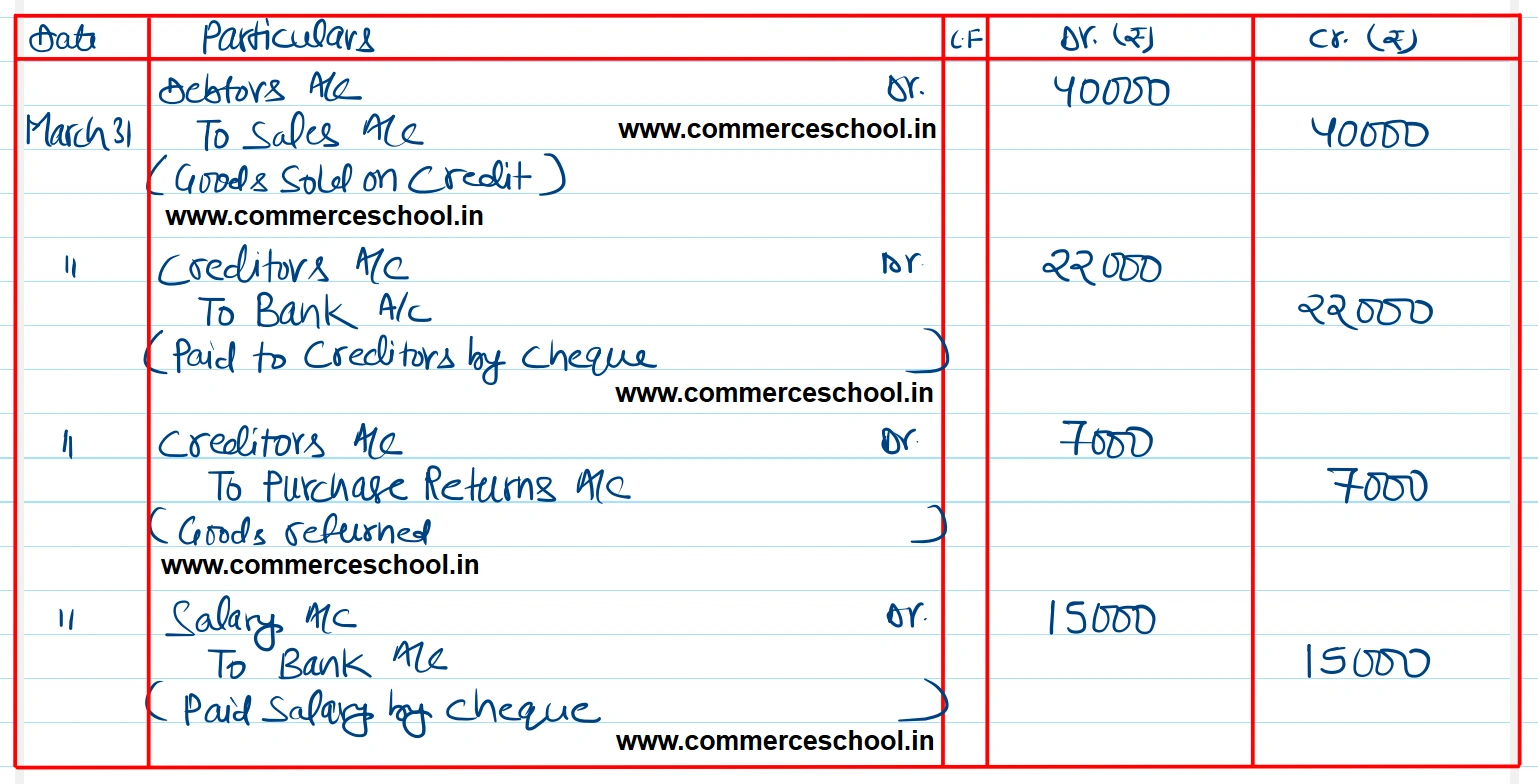 Date Particulars L.F Dr. (₹) Cr. (₹)
Debtors A/c Dr. 40000
March 31 To Sales A/c www.commerceschool.in 40000
(Goods Sold on Credit)
www.commerceschool.in
" Creditors A/C Dr. 22000
To Bank A/c 22000
(Paid to Creditors by cheque)
www.commerceschool.in
" Creditors A/c Dr. 7000
To Purchase Returns A/c 7000
(Goods returned)
www.commerceschool.in
" Salary A/C Dr. 15000
To Bank A/c 15000
(Paid Salary by cheque)
www.commerceschool.in